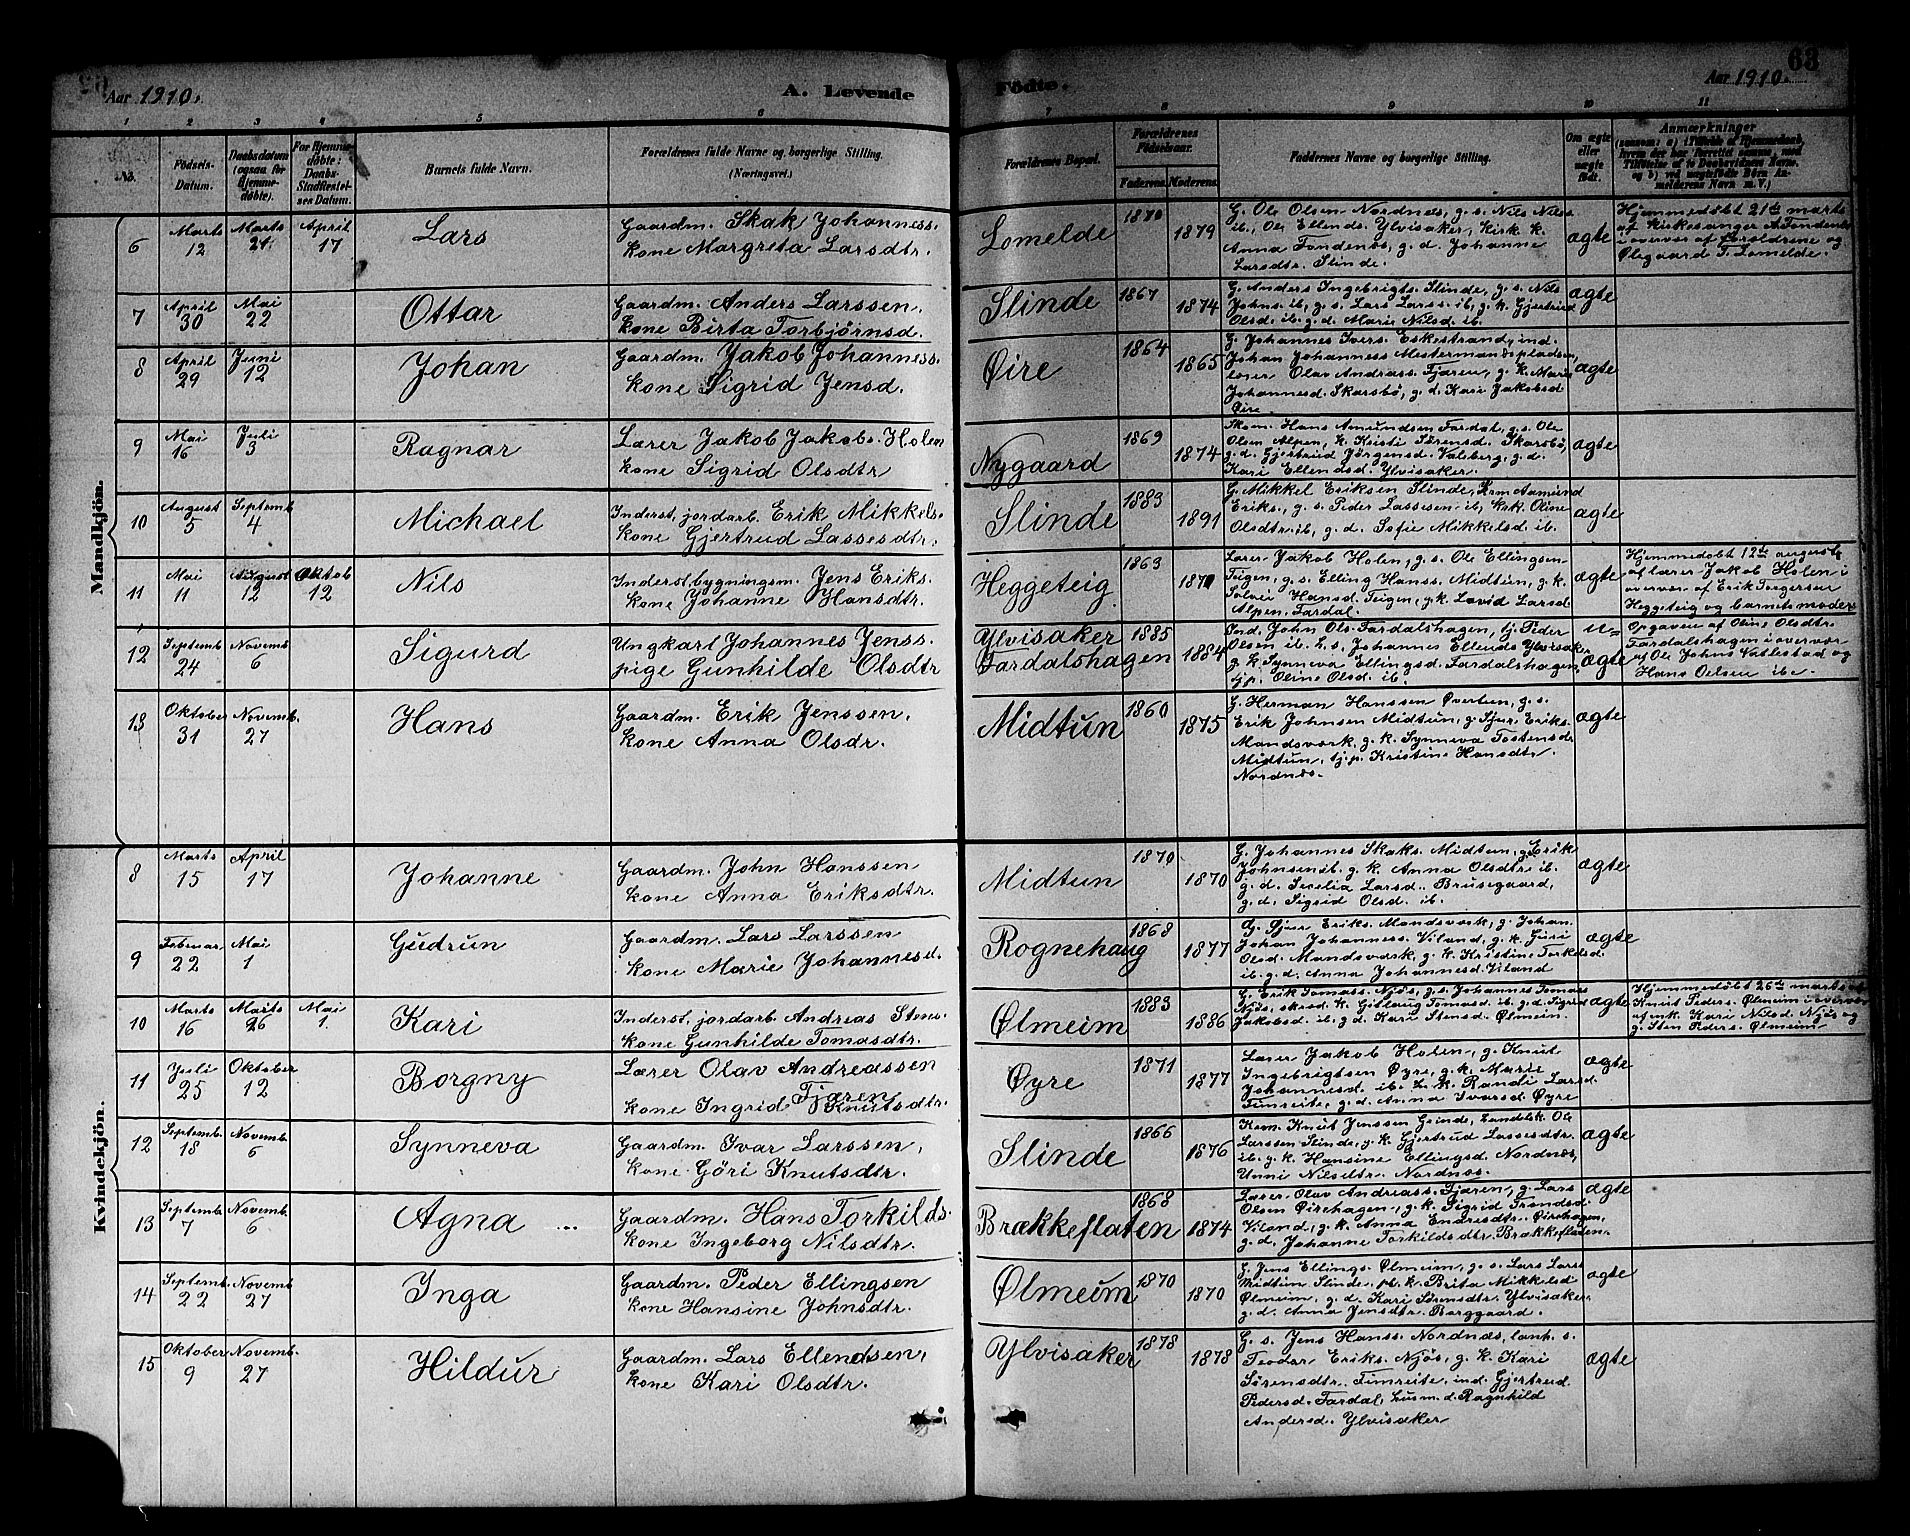 Aar 1910.
A. Levende
Födte.
63
Aar 1910.
1 2 3 4 5 6 7 8 9 10 11
No.
Födsels-Datum.
Daabsdatum (ogsaa for Hjemme-döbte).
For Hjemme-döbte: Daabs-Stadfæstel-ses Datum.
Barnets fulde Navn.
Forældrenes fulde Navne og borgerlige Stilling.
(Næringsvei.)
Forældrenes Bopæl.
Forældrenes Födselsaar.
Faderens. Moderens.
Faddernes Navne og borgerlige Stilling.
Om ægte eller uægte födt.
Anmærkninger
Mandkjön.
6 Marts 12 Marts 21. April 17 Lars
Gaardm. Skak Johanness.
kone Margreta Larsdtr.
Lomelde 1870 1879
G. Ole Olsen Nordnæs, g. s. Nils Nilss
ib., Ole Ellends. Ylvisaker, Kirk. k.
Anna Fondenös, g. d. Johanne
Larsdtr. Slinde.
ægte
Hjemmedøbt 21de marts
af kirkesanger A. Fondenös
i overvær af forældrene og
Ølegaard T. Lomelde.
7 April 30 Mai 22 Ottar
Gaardm. Anders Larssen.
kone Birta Torbjörnsd.
Slinde 1867 1874
G. Anders Ingebrigts. Slinde, g. s. Nils
Johns. ib, g. s. Lars Larss. ib, g. k. Gjertrud
Olsd. ib. g. d. Marie Nilsd. ib.
ægte
8 April 29 Juni 12 Johan
Gaardm. Jakob Johanness.
kone Sigrid Jensd.
Øire 1864 1865
G. Johannes Ivers. Eskestrand, ind.
Johan Johanness Mestermandspladsen,
lærer Olav Andreass. Fjæren, g. k. Marie
Johannesd. Skarsbø, g. d. Kari Jakobsd
Øire
ægte
9 Mai 16 Juli 3 Ragnar
Lærer Jakob Jakobs. Holen
kone Sigrid Olsdtr
Nygaard 1869 1874
Skom. Hans Amundsen Fardal, g. s. Ole
Olsen Alpen, k. Kristi Sørensd. Skarsbø,
g. d. Gjertrud Jörgensd. Valeberg, g. d.
Kari Ellendsd. Ylvisaker.
ægte
10 August 5 Septemb 4 Michael
Inderst, jordarb. Erik Mikkels.
kone Gjertrud Lassesdtr.
Slinde 1883 1891
G. Mikkel Eriksen Slinde, Krm Aamund
Eriks., g. s. Peder Lassesen ib, krk. Oline
Olsdtr. ib, g. d. Sofie Mikkelsd ib.
ægte
11 Mai 11 August 12 Oktob 12 Nils
Inderst bygningsm. Jens Eriks.
kone Johanne Hansdtr.
Heggeteig 1863 1870
Lærer Jakob Holen, g. s. Ole Ellingsen
Teigen, g. s. Elling Hanss. Midtun, g. k.
Sølvei Hansd. Teigen, g. k. Lovid Larsd
Alpen, Fardal.
ægte
Hjemmedøbt 12te august
af lærer Jakob Holen i
overvær af Erik Torgersen
Heggeteig og barnets moder
12 Septemb 24 Novemb 6 Sigurd
Ungkarl Johannes Jenss.
pige Gunhilde Olsdtr
Ylvisaker
Fardalshagen 1885 1884
Ind. John Ols. Fardalshagen, tj. Peder
Olsen ib. L. s. Johannes Ellends Ylvisaker
g. k. Synneva Ellingsd. Fardalshagen,
tj. p. Oline Olsd. ib.
u-ægte
Opgaven af Oline Olsdtr.
Fardalshagen i overvær
af Ole Johns Vatlestad og
Hans Oelsen ibe.
13 Oktober 31 Novemb. 27 Hans
Gaardm. Erik Jenssen.
kone Anna Olsdr.
Midtun 1860 1875
G. Herman Hanssen Øvertun, g. s.
Erik Johnsen Midtun, g. Sjur Eriks.
Mandsværk, g. k. Synneva Tostensdr
Midtun, tj. p. Kristine Hansdtr
Nordnes.
ægte
Kvindekjön.
8 Marts 15 April 17 Johanne
Gaardm. John Hanssen
kone Anna Eriksdtr.
Midtun 1870 1870
G. Johannes Skaks. Midtun, g. Erik
Johnsen ib. g. k. Anna Olsdtr ib.
g. d. Secelia Larsd. Brusegaard,
g. d. Sigrid Olsd. ib.
ægte
9 Februar 22 Mai 1 Gudrun
Gaardm. Lars Larssen
kone Marie Johannesd.
Rognehaug 1868 1877
G. Sjur Eriks. Mandsværk, g. Johan
Johan Johanness. Viland, g. k. Guri
Olsd. Mandsværk, g. k. Kristine Torkelsd.
ib. g. d. Anna Johannesd. Viland
ægte
10 Marts 16 Marts 26 Mai 1. Kari
Inderst, jordarb Andreas Stens.
kone Gunhilde Tomasdtr.
Ølmeim 1883 1886
G. Erik Tomass. Njös, g. s. Johannes Tomass
Njøs, skræd. k. Gitlaug Tomasd. ib. g. d. Sigrid
Jakobsd. ib. g. d. Kari Stensd. Ølmeim.
ægte
Hjemmedøbt 26de marts af
Knut Peders. Ølmeim i overvær
af mk. Kari Nilsd. Njøs og
g. Sten Peders. Ølmeim
11 Juli 25 Oktober 12 Borgny
Lærer Olav Andreassen
Fjæren
kone Ingrid Knutsdtr.
Øyre 1871 1877
Lærer Jakob Holen, g. Knut
Ingebrigtsen Øyre, g. k. Marie
Johannesd. ib. L. k. Randi Larsd.
Fimreite, g. d. Anna Ivarsd. Øyre
ægte
12 Septemb. 18 Novemb. 6 Synneva
Gaardm. Ivar Larssen,
kone Göri Knutsdtr.
Slinde 1866 1876
Kem. Knut Jenssen Grinde, Landhk. Ole
Larssen Slinde, g. k. Gjertrud Lassesdtr.
ib. g. k. Hansine Ellingsd. Nordnæs,
Unni Nilsdtr. Nordnæs.
ægte
13 Septemb. 7 Novemb. 6 Agna
Gaardm. Hans Torkilds.
kone Ingeborg Nilsdtr.
Brækkeflaten 1868 1874
Lærer Olav Andreass. Fjæren, g. Lars
Olsen Øirehagen, g. k. Sigrid Trondsd.
Viland, g. k. Anna Endresdtr. Øirehagen,
g. d. Johanne Torkildsdtr. Brækkeflaten.
ægte
14 Septemb. 22 Novemb 27 Inga
Gaardm. Peder Ellingsen
kone Hansine Johnsdtr.
Ølmeim 1870 1870
G. Jens Ellings. Ølmeim, g. s. Lars Larss
Midtun Slinde, k. Brita Mikkelsd
Ølmeim, g. d. Kari Sørensdtr. Ylvisaker,
g. d. Anna Jensdtr. Borggaard.
ægte
15 Oktober 9 Novemb. 27 Hildur
Gaardm. Lars Ellendsen,
kone Kari Olsdtr.
Ylvisaker 1878 1878
G. s. Jens Hanss. Nordnæs, lanh. s.
Teodor Eriks. Njøs, g. k. Kari
Sørensdtr. Fimreite, ind. Gjertrud
Pedersd. Fardal, husm. d. Ragnhild
Andersd. Ylvisaker
ægte